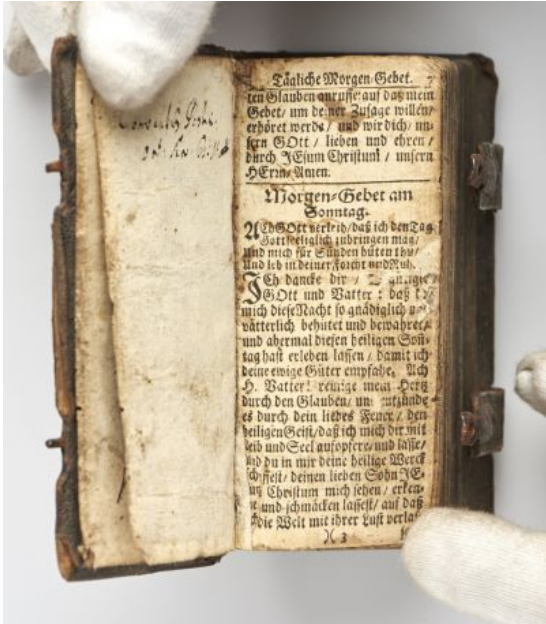 Tägliche Morgen-Gebet. 7
ten Glauben anruffe: auf daß mein
Gebet/ um deiner Zusage willen/
erhöret werde/ und wir dich/ un-
sern GOtt/ lieben und ehren/
durch JEsum Christum/ unsern
HErrn/ Amen.
Morgen-Gebet am
Sonntag.
ACh GOtt verleih/ daß ich den Tag
Gottseeliglich zubringen mag/
Und mich für Sünden hüten thu/
Und leb in deiner Forcht und Ruh.
ICh dancke dir /
GOtt und Vatter: daß
mich diese Nacht so gnädiglich
vätterlich behütet und bewahret/
und abermal diesen heiligen Son-
tag hast erleben lassen/ damit ich
deine ewige Güter empfahe. Ach
H. Vatter! reinige mein Hertz
durch den Glauben/ entzünde
es durch dein liebes Feuer/ den
heiligen Geist/ daß ich mich dir mit
Leib und Seel aufopfere/ und lasse/
du in mir deine heilige Werck
deinen lieben Sohn JE-
Christum mich sehen/
und schmäcken lassest/ auf daß
die Welt mit ihrer Lust
3